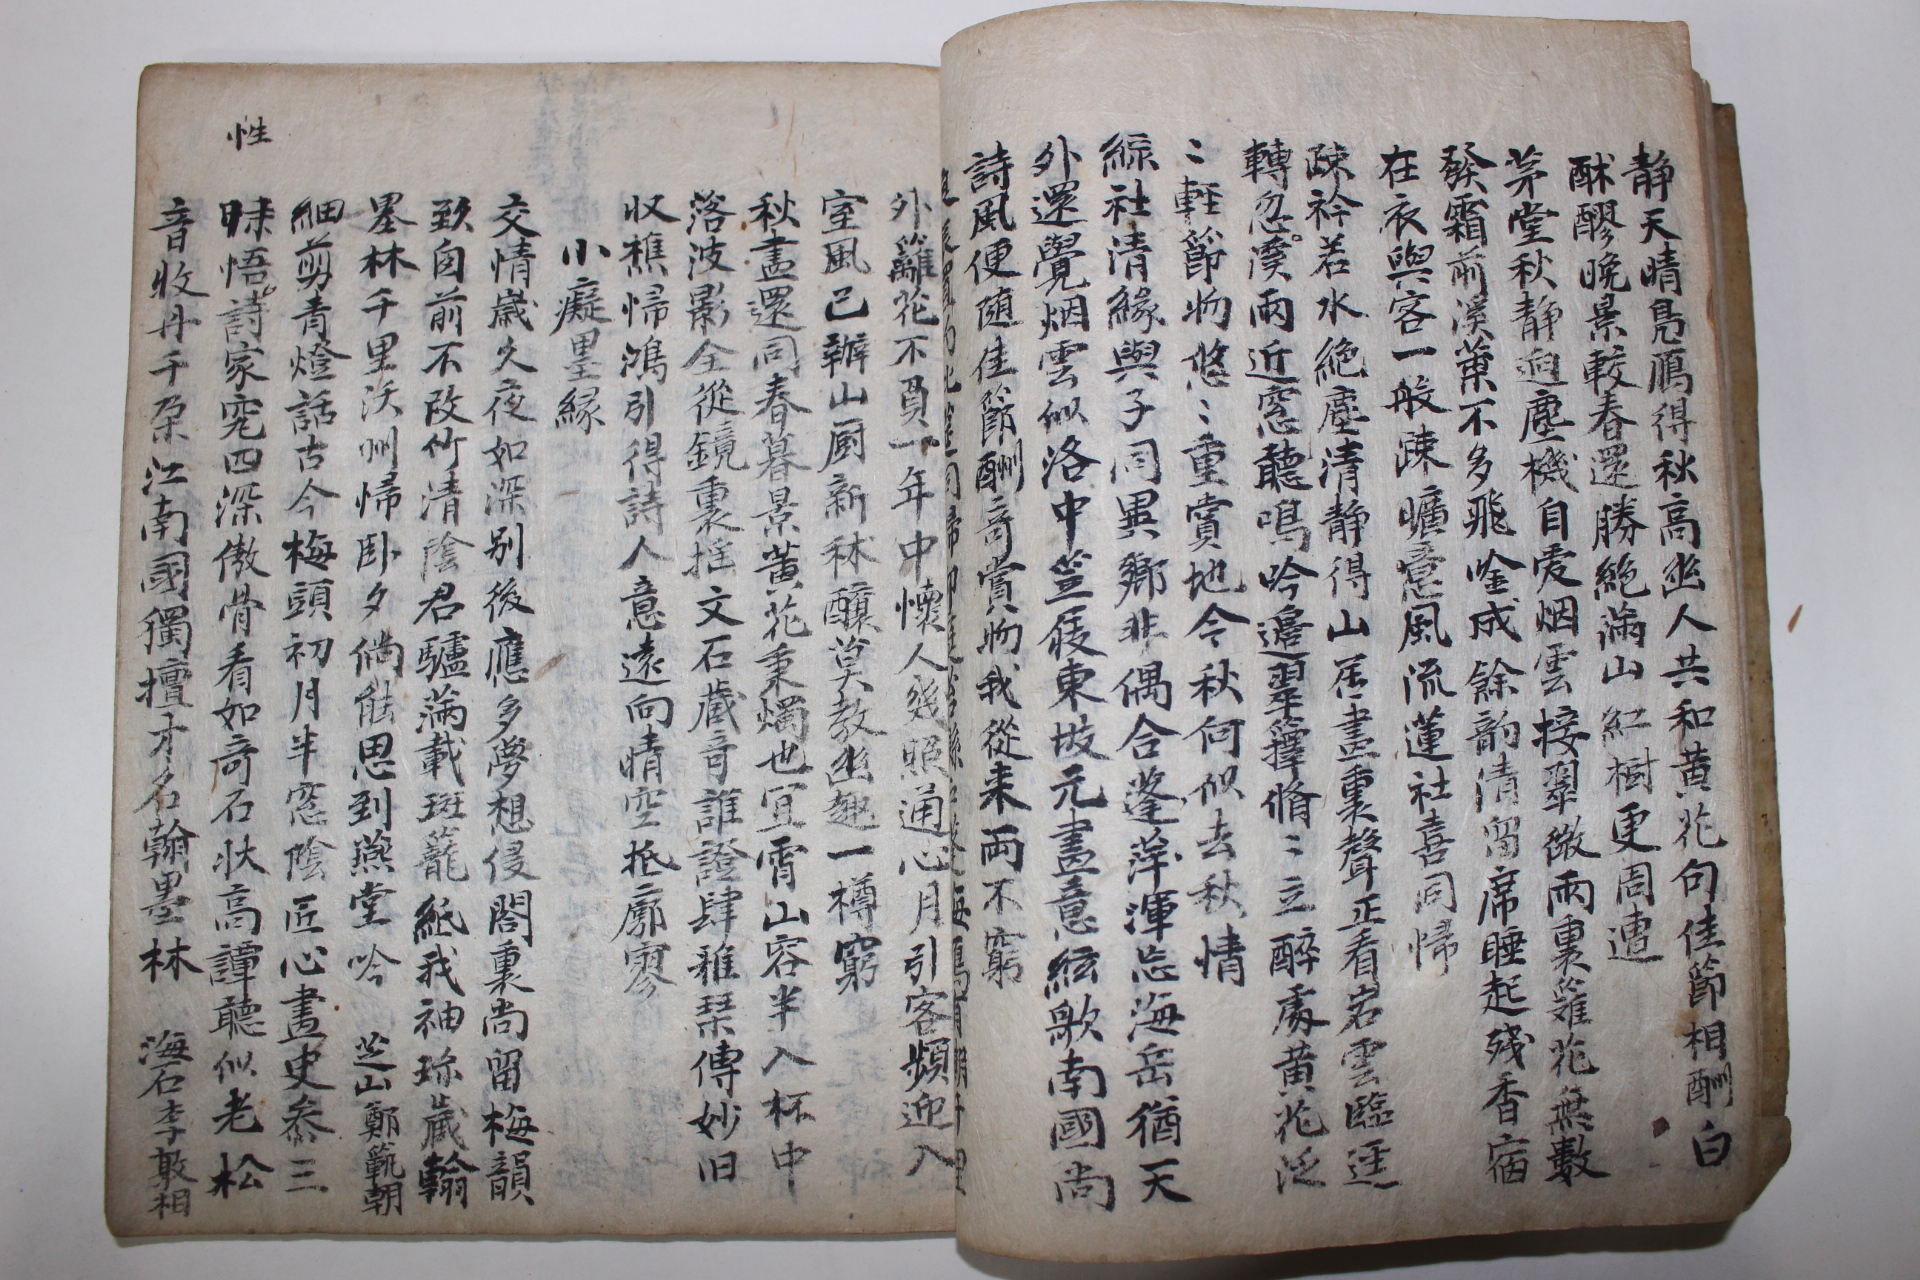 静天晴鳧鴈得秋高幽人共和黄花句佳節相酬白
酥醪晚景較春還勝絶滿山紅樹更周遭
茅堂秋静迥塵機自愛烟雲接翠微兩裏籬花無數
發霜前溪葉不多飛唫成餘韵清留席睡起殘香宿
在衣與客一般踈曠意風流蓮社喜同帰
踈衿若水絶塵清静得山居畫裏聲正看岩雲臨逕
轉忽溪兩近窓聽鳴吟邉翠籜脩〻立醉處黄花泛
〻軽節物悠〻重賞地今秋何似去秋情
綜社清緣與子同異鄉非偶合蓬萍渾忘海岳猶天
外還覺烟雲似洛中笠屐東坡元畫意絃歌南國尚
詩風便随佳節酬奇賞物我從来両不窮
外籬花不負一年中懷人幾照通心月引客頻迎入
室風已辦山厨新秫釀莫教幽趣一樽窮
秋盡還同春暮景黄花秉燭也宜宵山容半入杯中
落波影全從鏡裏揺文石蔵奇誰證肆雅琹傳妙旧
收樵帰鴻引得詩人意遠向情空抵廓寥
小癡墨緣
交情歲久夜如深别後應多夢想侵閣裏尚留梅韻
致囱前不改竹清陰君驢滿載斑蘢紙我袖珎蔵翰
墨林千里沃州帰卧夕倘能思到燕堂吟 芝山鄭範朝
細剪青燈話古今梅頭初月半窓陰匠心畫史叅三
昧悟詩家究四深傲骨看如奇石狀高譚聽似老松
性
音收丹千朶江南國獨擅才名翰墨林 海石李敦相